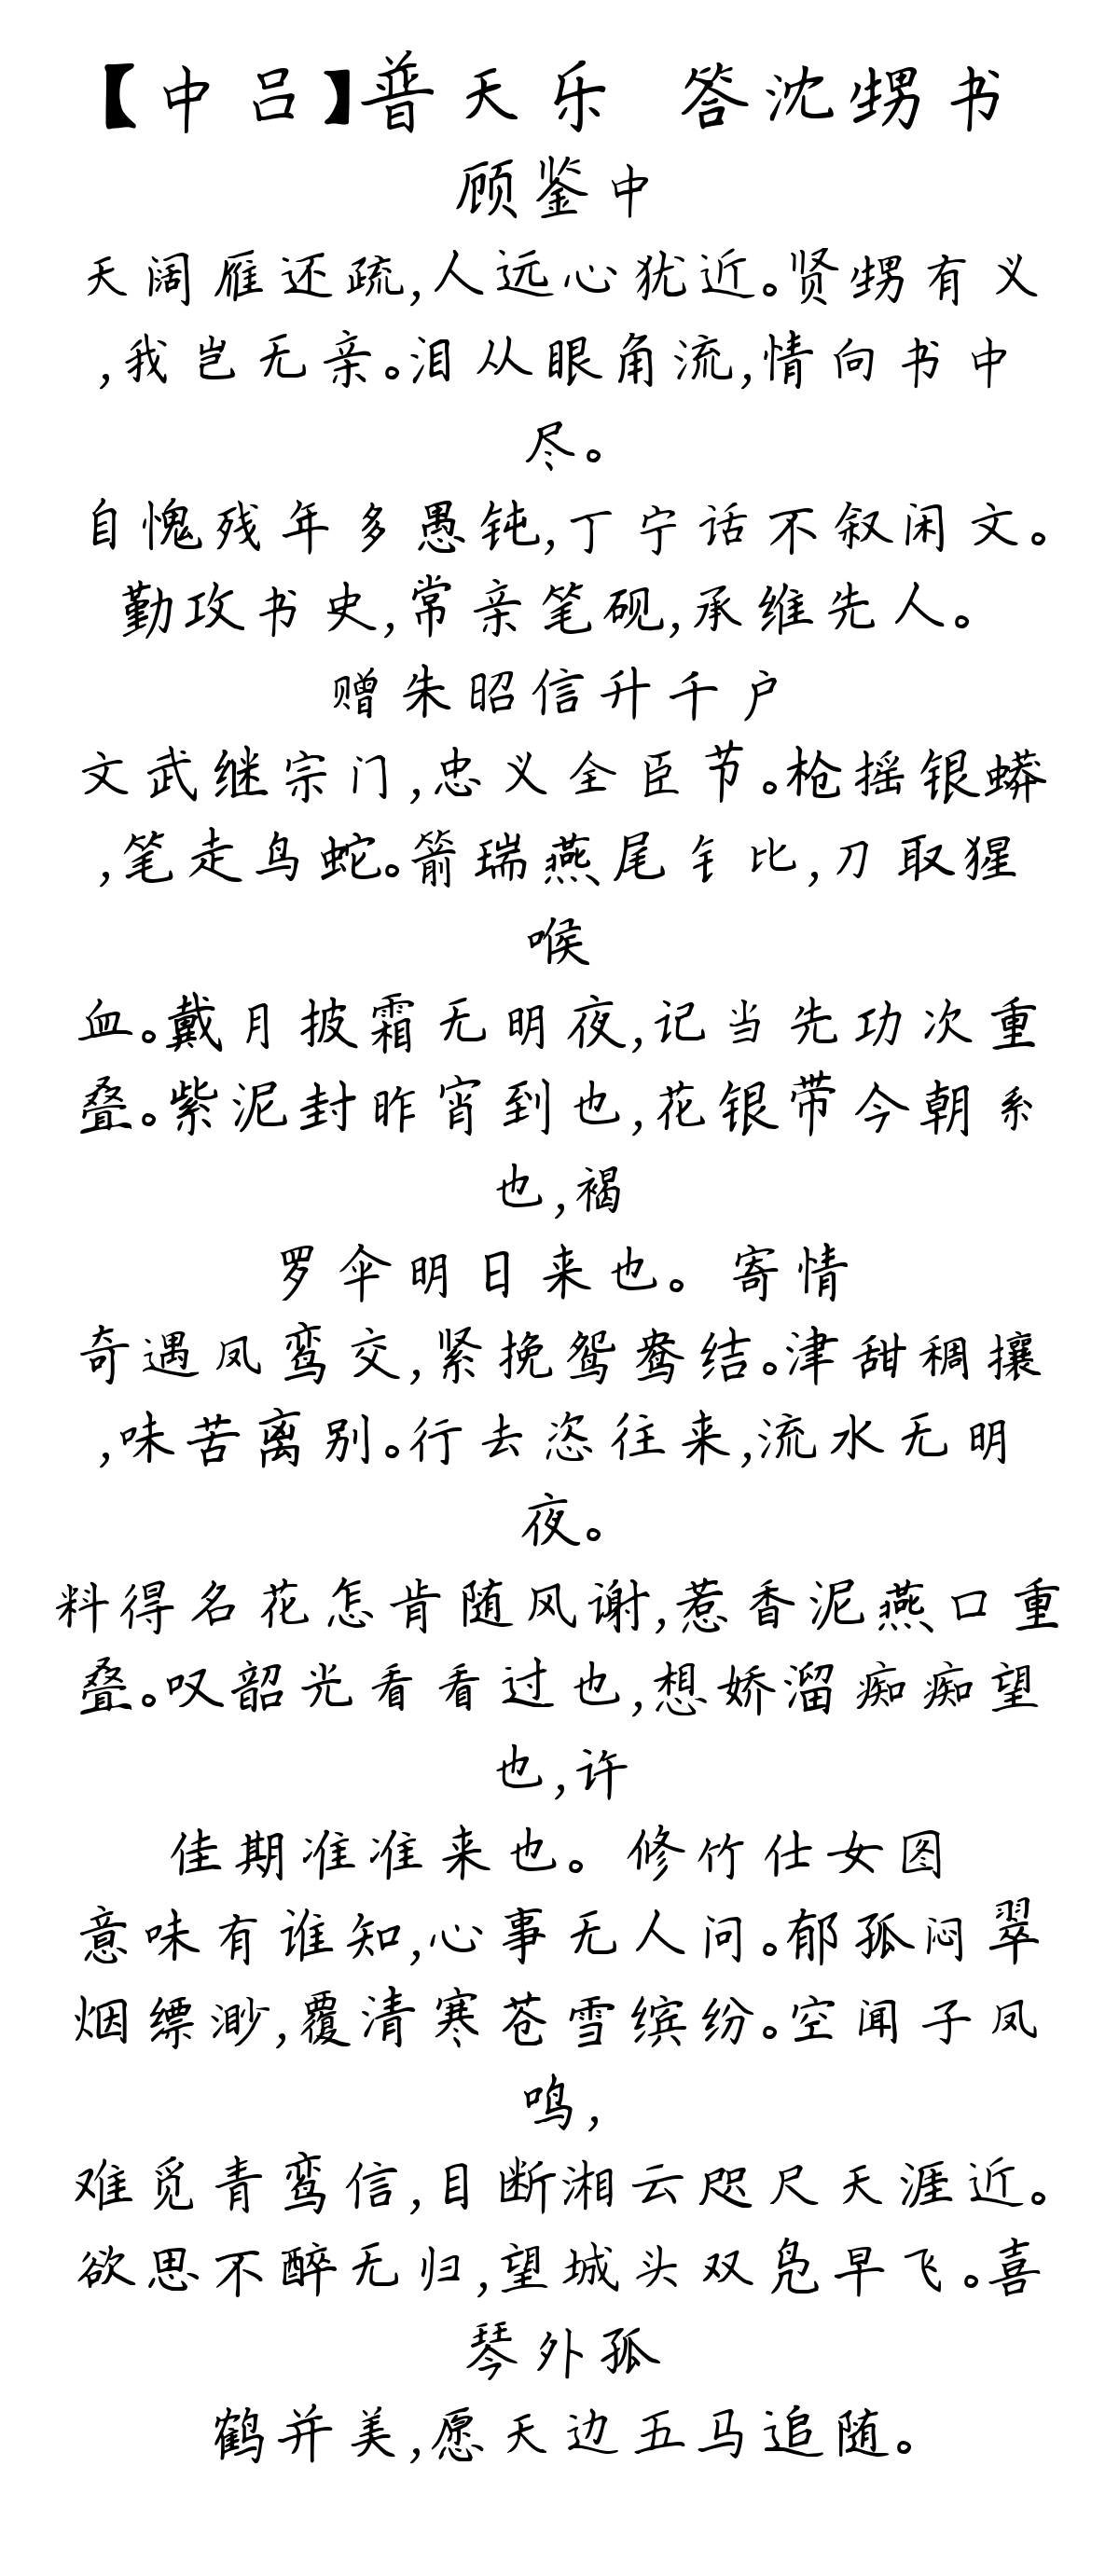 【中吕】普天乐 答沈甥书
顾鉴中
天阔雁还疏,人远心犹近。贤甥有义
,我岂无亲。泪从眼角流,情向书中
尽。
自愧残年多愚钝,丁宁话不叙闲文。
勤攻书史,常亲笔砚,承维先人。
赠朱昭信升千户
文武继宗门,忠义全臣节。枪摇银蟒
,笔走鸟蛇。箭瑞燕尾钅比,刀取猩
喉
血。戴月披霜无明夜,记当先功次重
叠。紫泥封昨宵到也,花银带今朝系
也,褐
罗伞明日来也。寄情
奇遇凤鸾交,紧挽鸳鸯结。津甜稠攘
,味苦离别。行去恣往来,流水无明
夜。
料得名花怎肯随风谢,惹香泥燕口重
叠。叹韶光看看过也,想娇溜痴痴望
也,许
佳期准准来也。修竹仕女图
意味有谁知,心事无人问。郁孤闷翠
烟缥渺,覆清寒苍雪缤纷。空闻子凤
鸣,
难觅青鸾信,目断湘云咫尺天涯近。
欲思不醉无归,望城头双凫早飞。喜
琴外孤
鹤并美,愿天边五马追随。